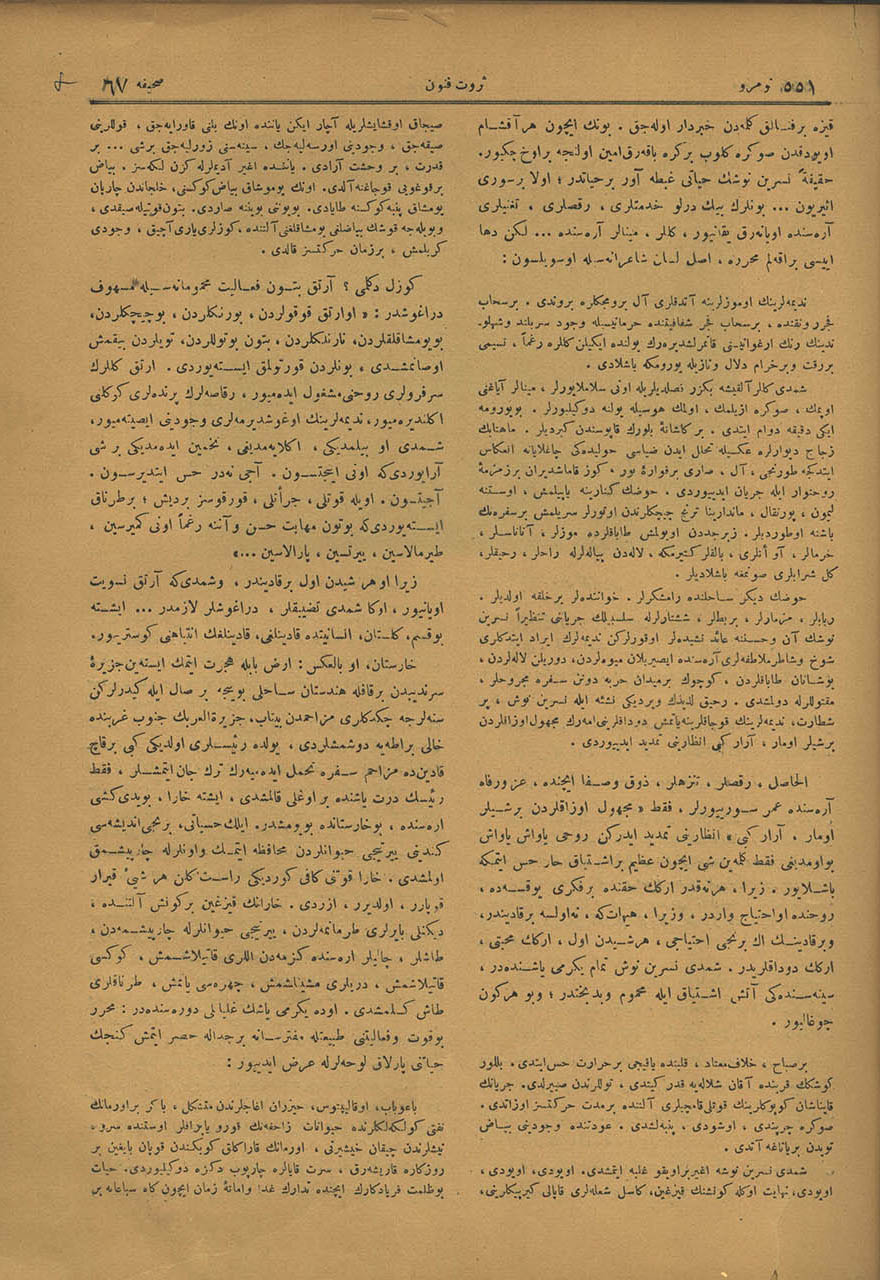 نومرو ٥٥١
ثروت فنون
صحیفه ٦٧
قیزه برفنالق كله‌دن خبردار اوله‌جق . بونك ایچون هر آقشام
اویودقدن صوكره كلوب بركره باقه‌رق امین اولنجه براوخ چكیور.
حقیقةً نسرین نوشك حیاتی غبطه آور برحیاتدر ؛ اولا پرسوری
اثیریون ... بونلرك بیك درلو خدمتلری ، رقصلری ، تغنیلری
آره‌سنده اویانه‌رق یقانیور ، كللر ، مینالر آره‌سنده ... لكن دها
اییسی براقه‌لم محرره ، اصل لسان شاعرانه‌سیله اوسویلسون :
ندیمه‌لرینك اوموزلرینه آتدقلری آل برومجكلره بروندی . برسحاب
فجر رونقنده ، برسحاب فجر شفافیتنده حرماتیله وجود سربلند وشهلو-
ندینك رنك ارغوانیتنی قاتمرلشدیره‌رك یولنده ایكیلن كللره رغماً ، نسیمی
بررقت وبرخرام دلال ونازیله یورومكه باشلادی .
شمدی كللر آلقیشه بكزر فصلدیلریله اونی سلاملایورلر ، مینالر آیاغنی
اوپمك ، صوكره ازیلمك ، اولمك هوسیله یولنه دوكیلیورلر . بویورومه
ایكی دقیقه دوام ایتدی . بركاشانهٔ بلورك قاپوسندن كیردیلر . ماهتابك
زجاج دیوارلره عكسیله تحلل ایدن ضیاسی حولیده‌كی چاغلایانه انعكاس
ایتدكجه طورنجی ، آل ، صاری برفوارهٔ نور ، كوز قاماشدیران برزمزمهٔ
روحنوار ایله جریان ایدییوردی . حوضك كنارینه یاپیلمش ، اوستنه
لیمون ، پورتقال ، ماندارینا ترنج چیچكلرندن اوتورلر سریلمش برسفره‌نك
باشنه اوطوردیلر . زبرجددن اویولمش طاباقلرده موزلر ، آناناسلر ،
خرمالر ، آو اتلری ، بالقلر كتیرمكه ، لاله‌دن پیاله‌لرله راحلر ، رحیقلر،
كل شرابلری صونمغه باشلادیلر .
حوضك دیكر ساحلنده رامشكرلر . خواننده‌لر برحلقه اولدیلر .
ربابلر ، مزمارلر ، بربطلر ، ششتارلرله سلسبیلك جریاننی تنظیراً نسرین
نوشك آن وحسننه عائد نشیده‌لر اوقورلركن ندیمه‌لرك ایراد ایتدكلری
شوخ وشاطر ملاطفه‌لری آره‌سنده ایصیریلان میوه‌لردن، دوریلن لاله‌لردن ،
بوشانان طاباقلردن ، كوچوك برمیدان حربه دونن سفره مجروحلر ،
مقتوللرله دولمشدی . رحیق لذیذك ویردیكی نشئه ایله نسرین نوش ، پر
شطارت، ندیمه‌لرینك قوجاقلرینه یاتمش دوداقلرینی امه‌رك مجهول اوزاقلردن
برشیلر اومار ، آرار كبی انظارینی تمدید ایدییوردی .
الحاصل ، رقصلر ، تنزهلر ، ذوق وصفا ایچنده ، عز ورفاه
آره‌سنده عمر سورییورلر ، فقط « مجهول اوزاقلردن برشیلر
اومار ، آرار كبی » انظارینی تمدید ایدركن روحی یاواش یاواش
بولمدیغی فقط كله‌ین شی ایچون عظیم براشتیاق حار حس ایتمكه
باشلایور . زیرا ، هرنه‌قدر اركك حقنده برفكری یوقسه‌ده ،
روحنده اواحتیاج واردر ، وزیرا ، هیهات‌كه ، نه‌اولسه برقادیندر،
وبرقادینك اك برنجی احتیاجی ، هرشیدن اول ، اركك محبتی ،
اركك دوداقلریدر . شمدی نسرین نوش تمام یكرمی یاشنده‌در ،
سینه‌سنده‌كی آتش اشتیاق ایله محموم وبدبختدر ؛ وبو هركون
چوغالیور .
برصباح ، خلاف معتاد ، قلبنده یاقیجی برحرارت حس ایتدی . بللور
كوشكك قربنده آقان شلاله‌یه قدر كیتدی ، توللرندن صییرلدی. جریانك
قایناشان كوپوكلرینك قوتلی قامچیلری آلتنده برمدت حركتسز اوزاندی.
صوكره چرپندی ، اوشودی ، پنبه‌لشدی . عودتنده وجودینی بیاض
تویدن بریاتاغه آتدی .
شمدی نسرین نوشه اغیر براویقو غلبه ایتمشدی. اویودی، اویودی ،
اویودی، نهایت اوكله كونشنك قیزغین، كاسل شعله‌لری قاپالی كیرپیكلرینی،
صیجاق اوقشایشلریله آچار ایكن یاننده اونك بلنی قاورایه‌جق ، قوللرینی
صیقه‌جق ، وجودینی اورسه‌لیه‌جك ، سینه‌سنی زورلیه‌جق برشی ... بر
قدرت ، بر وحشت آرادی . یاننده اغیر آدیملرله كزن لكه‌سز . بیاض
برقوغویی قوجاغنه آلدی. اونك یوموشاق بیاض كوكسنی، خلجاندن چارپان
یومشاق پنبه كوكسنه طایادی. بوینونی بوینه صاردی. بتون قوتیله صیقدی ،
وبویله‌جه قوشك بیاضلغی یومشاقلغنی آلتنده ، كوزلری یاری آچیق ، وجودی
كریلمش ، برزمان حركتسز قالدی .
كوزل دكلمی ؟ آرتق بتون فعالیت محرومانه‌سیله ملهوف
دراغوشدر : « اوارتق قوقولردن ، بورنكلردن ، بوچیچكلردن،
بویومشاقلقلردن، نازندكلردن ، بتون بوتوللردن، تویلردن بیقمش
اوصانمشدی ، بونلردن قورتولمق ایسته‌یوردی . ارتق كللرك
سرفرولری روحنی مشغول ایده‌میور ، رقاصه‌لرك پرنده‌لری كوكلنی
اكلندیره‌میور، ندیمه‌لرینك اوغوشدیرمه‌لری وجودینی ایصیته‌میور،
شمدی او بیلمدیكی ، اكلایه‌مدیغی ، تخمین ایده‌مدیكی برشی
آرایوردی‌كه اونی اینجتسون . آجی نه‌در حس ایتدیرسون .
آجیتسون . اویله قوتلی ، جرأتلی ، قورقوسز بردیش ؛ برطرناق
ایسته‌یوردی‌كه بوتون مهابت حسن وآننه رغماً اونی كمیرسین ،
طیرمالاسین ، ییرتسین ، پارالاسین ...»
زیرا او هر شیدن اول برقادیندر ، وشمدی‌كه آرتق نسویت
اویانیور ، اوكا شمدی تضییقلر ، دراغوشلر لازمدر ... ایشته
بوقسم، كلستان، انسانیتده قادینلغی، قادینلغك انتباهنی كوستریور.
خارستان، او بالعكس : ارض بابله هجرت ایتمك ایسته‌ین جزیرهٔ
سرندیبدن برقافله هندستان ساحلی بوینجه بر صال ایله كیدرلركن
سنه‌لرجه چكدكلری مزاحمدن بیتاب. جزیرة‌العربك جنوب غربنده
خالی براطه‌یه دوشمشلردی ، یولده رئیسلری اولدیكی كبی برقاچ
قادین‌ده مزاحم سفره تحمل ایده‌میه‌رك ترك جان ایتمشلر ، فقط
رئیسك درت یاشنده بر اوغلی قالمشدی ، ایشته خارا ، بویدی كشی
اره‌سنده ، بوخارستانده بویومشدر. ایلك حسیاتی، برنجی اندیشه‌سی
كندینی ییرتیجی حیوانلردن محافظه ایتمك واونلرله چارپیشمق
اولمشدی . خارا قوتنی كافی كوردیكی راست كلن هر شیئی قیرار
قوپارر ، اولدیرر ، ازردی . خارانك قیزغین بركونش آلتنده ،
دیكنلی بایرلری طرمانمه‌لردن ، ییرتیجی حیوانلرله چارپیشمه‌دن ،
طاشلر ، چالیلر اره‌سنده كزمه‌دن اللری قاتیلاشمش ، كوكسی
قاتیلاشمش ، دریلری مشینلشمش ، چهره‌سی یانمش ، طرناقلری
طاش كسلمشدی . اوده یكرمی یاشك غلیانلی دوره‌سنده‌در : محرر
بوقوت وفعالیتنی طبیعتله مفترسانه برجداله حصر ایتمش كنجك
حیاتنی پارلاق لوحه‌لرله عرض ایدییور :
باعوباب، اوقالیپتوس، حیزران اغاجلرندن متشكل ، باكر براورمانك
نفتی كولكه‌لكلرنده حیوانات زاحفه‌نك قورو یاپراقلر اوستنده سرو ،
تیشلرندن چیقان خیشیرتی ، اورمانك قاراكلق كوبكندن قوپان بایغین بر
روزكاره قاریشه‌رق ، سرت قایالره چارپوب دكزه دوكیلیوردی. حیات
بوظلمت فریادكارك ایچنده تدارك غدا وامانهٔ زمان ایچون كاه سباعانه بر